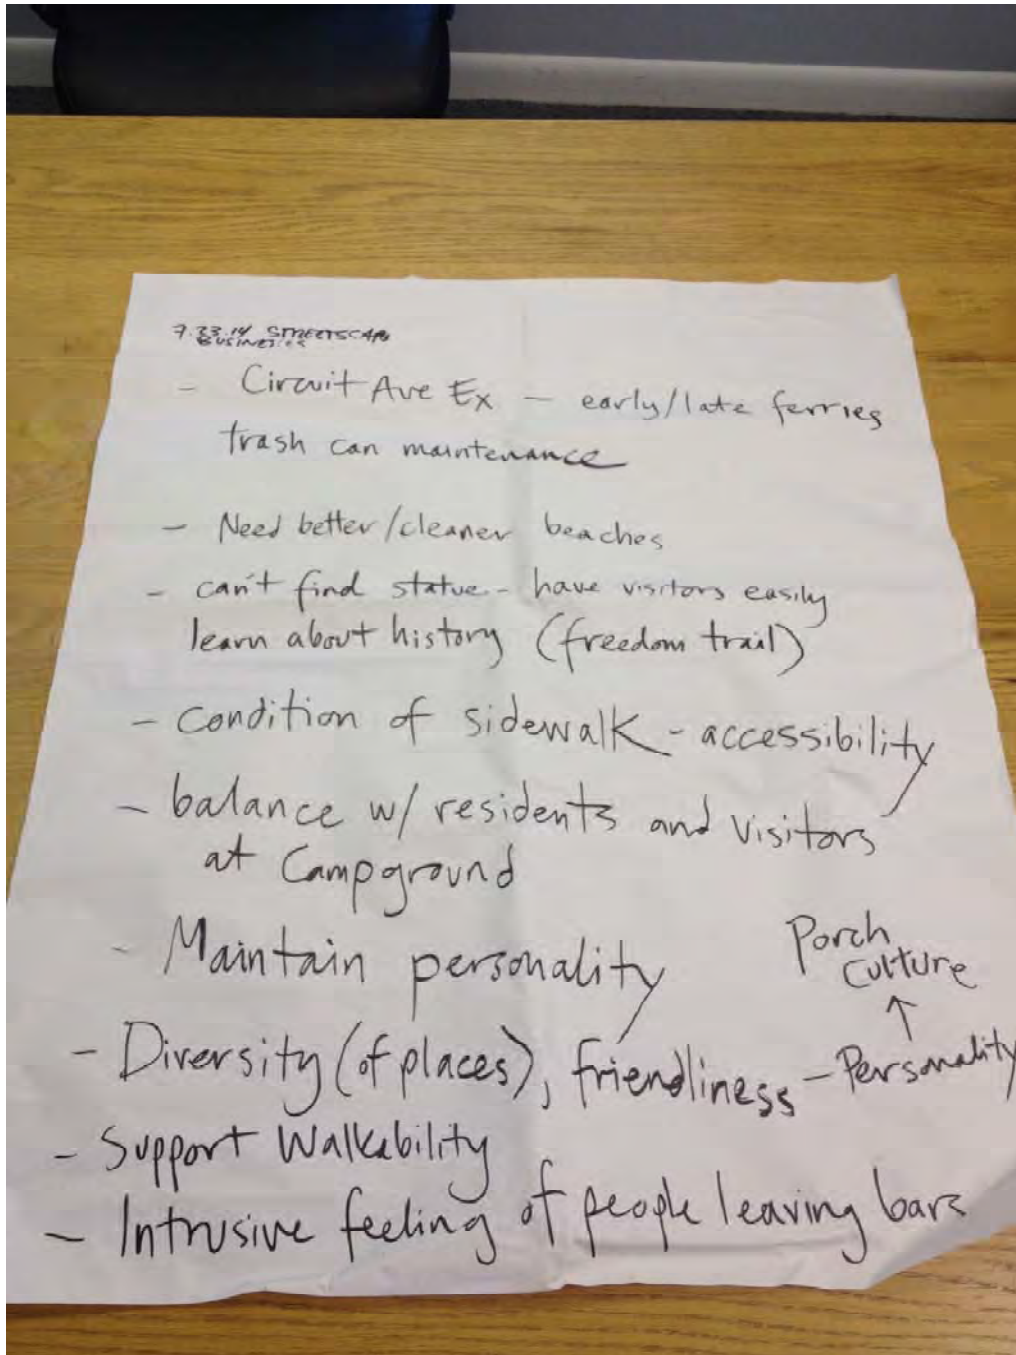 7.23.14 STREETSCAPE
BUSINESSES
- Circuit Ave Ex - early/late ferries
trash can maintenance
- Need better/cleaner beaches
- can't find statue - have visitors easily
learn about history (freedom trail)
- condition of sidewalk - accessibility
- balance w/ residents and visitors
at Campground
- Maintain personality
Porch
Culture
↑
- Diversity (of places), friendliness - Personality
- Support Walkability
- Intrusive feeling of people leaving bars